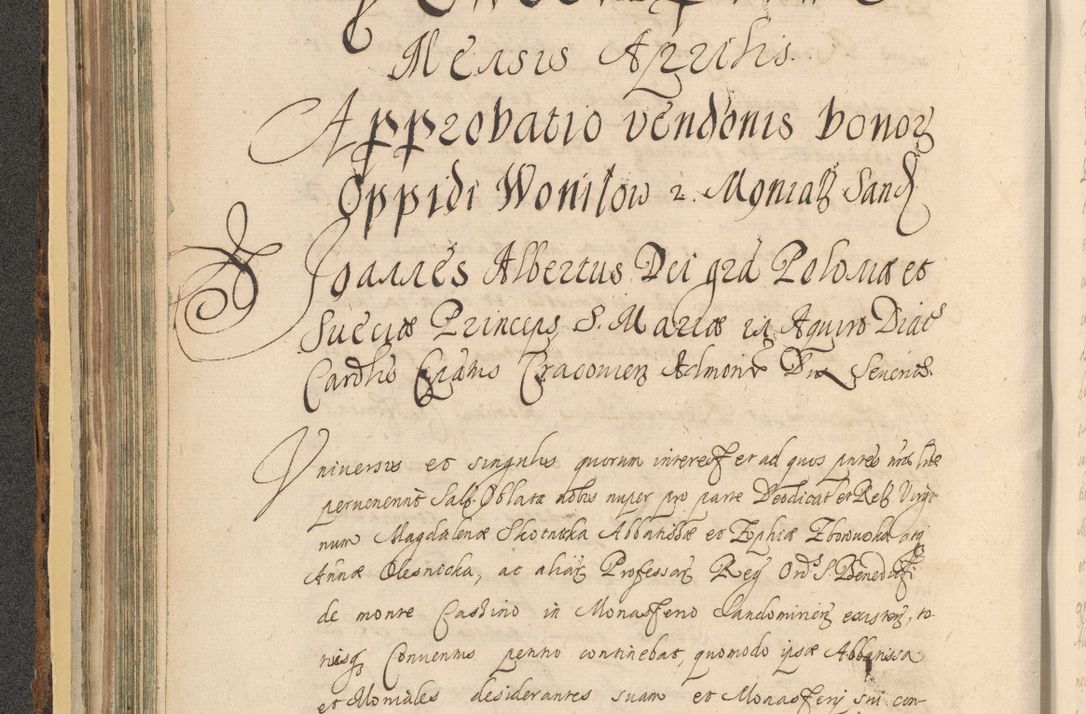 Mensis Aprilis.
Approbatio vendonis bonoꝝ
Oppidi Wonilow 2. Monialꝫ Sand
Joannes Albertus Dei grā Poloniæ et
Sueciæ Princeps S. Mariæ in Aquiro Diac
Cardlis Epātus Cracovienꝫ Admōr Dux Severiē
Universis et singulis quorum interest et ad quos pntes nrae lrae
pervenerint Salt Oblata nobis nuper pro parte Deodicat et Relꝫ Virgi
num Magdalenæ Skotnicka Abbatissæ et Zophiæ Zborowska
Annæ Olesnicka, ac aliaꝝ Professaꝝ Reg Ord S. Benedicti
de monte Cassino in Monasterio Sandominienꝫ existenꝫ, to
tiusqꝫ Conventus petitio continebat, quomodo ipsæ Abbatissa
et Moniales desiderantes suam et Monasterij sui con-